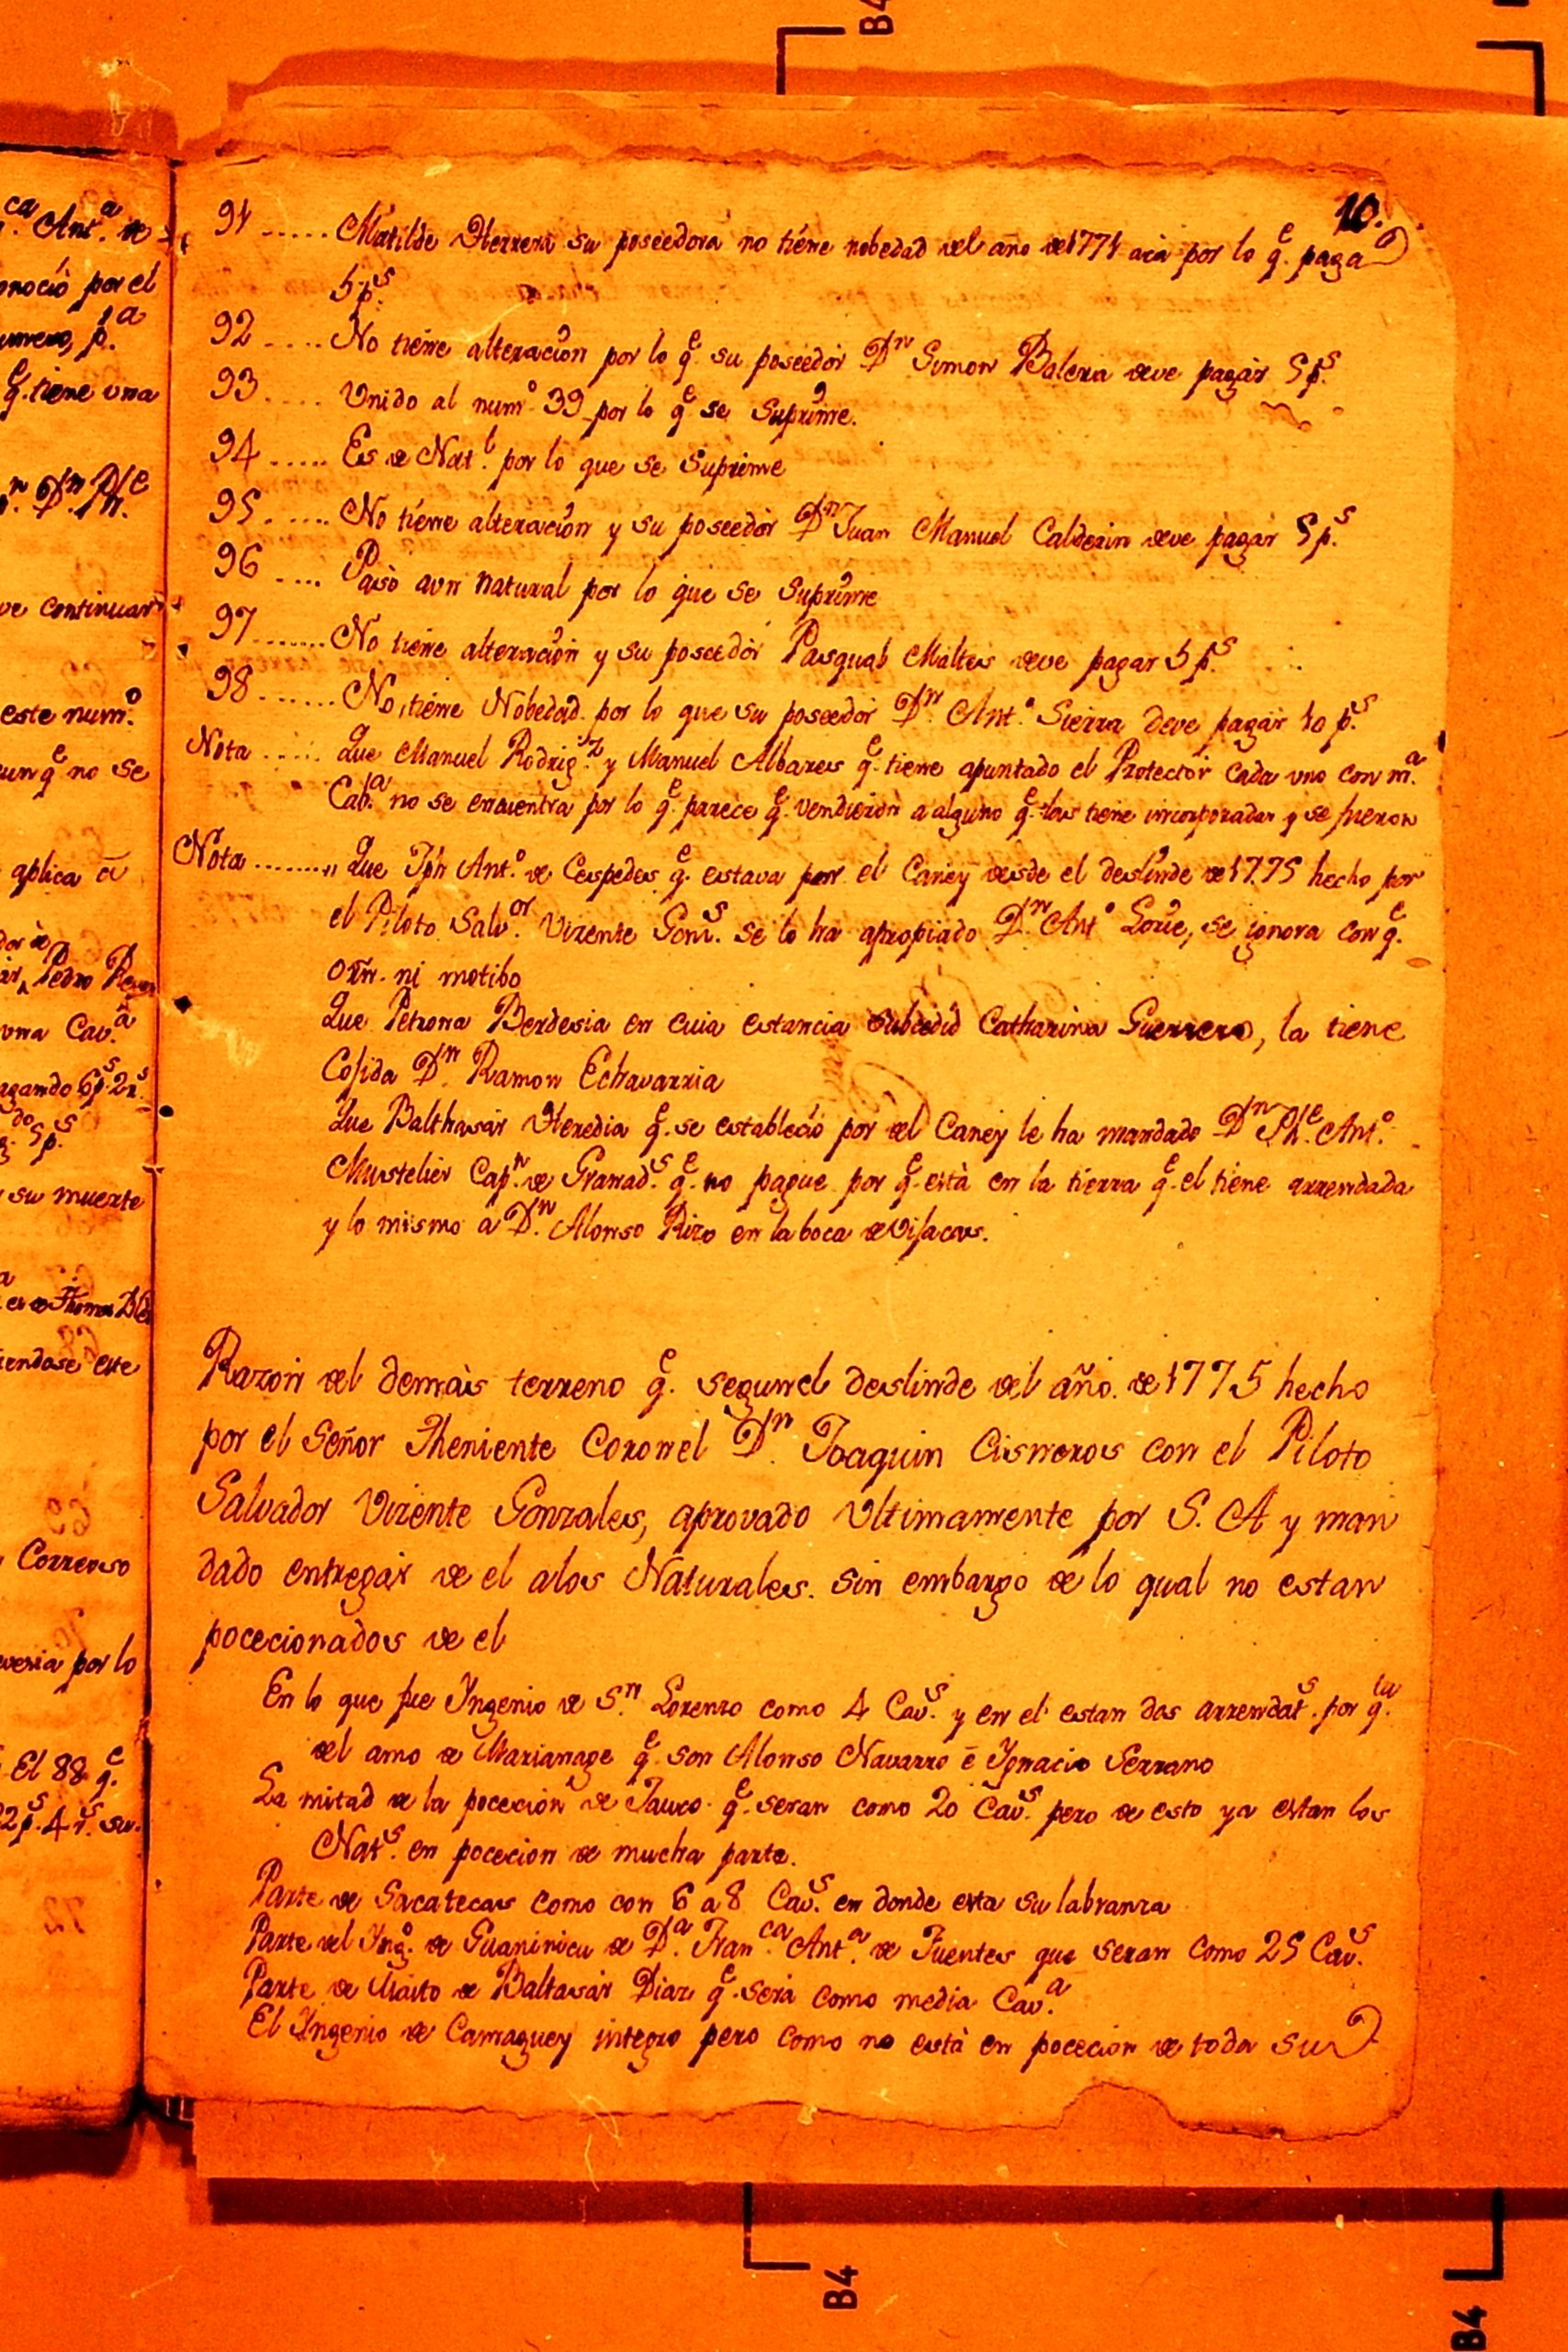 10.
91 ...... Matilde Herrera su poseedora no tiene nobedad del año de 1771 acá por lo q.e paga
5 p.s
92 ..... No tiene alteracion por lo q.e su poseedor D.n Simon Balera deve pagar 5 p.s
93 .... Unido al num.o 39 por lo q.e se Suprime.
94 ..... Es de Nat.l por lo que se Suprime
95 ...... No tiene alteracion y su poseedor D.n Juan Manuel Calderin deve pagar 5 p.s
96 .... Pasò aun natural por lo que se Suprime
97 ....... No tiene alteracion y su poseedor Pasqual Maltes deve pagar 5 p.s
98 ....... No, tiene Nobedad por lo que su poseedor D.n Ant.o Sierra deve pagar 10 p.s
Nota ..... Que Manuel Rodrig.z y Manuel Albares q.e tiene apuntado el Protector cada uno con m.a
Cab.a no se encuentra por lo q.e parece q.e vendieron a alguno q.e las tiene incorporadas y se fueron
Nota ........ Que Jph Ant.o de Cespedes q.e estava por el Caney desde el deslinde de 1775 hecho por
el Piloto Salv.or Vizente Gons.s se lo ha apropiado D.n Ant.o Loríe, se ignora con q.e
orñ. ni motibo
Que Petrona Berdesia en cuia estancia Subcedió Catharina Guerrero, la tiene
Cojida D.n Ramon Echavarria
Que Balthasar Heredia q.e se estableció por del Caney le ha mandado D.n Ph.e Ant.o
Mustelier Cap.n de Granad.s q.e no pague por q.e està en la tierra q.e el tiene arrendada
y lo mismo a D.n Alonso Rizo en la boca de Vijacas.
Razon del demàs terreno q.e segun el deslinde del año de 1775 hecho
por el Señor Theniente Coronel D.n Joaquin Cisneros con el Piloto
Salvador Vizente Gonzales, aprovado Ultimamente por S. A y man
dado entregar de el alos Naturales. sin embargo de lo qual no estan
pocecionados de el
En lo que fue Yngenio de S.n Lorenzo como 4 Cav.s y en el estan dos arrendat.s por q.ta
del amo de Marianage q.e son Alonso Navarro ē Ygnacio Serrano
La mitad de la pocecion de Jauco q.e seran como 20 Cav.s pero de esto ya estan los
Nat.s en pocecion de mucha parte.
Parte de Sacatecas como con 6 a 8 Cav.s en donde esta su labranza
Parte del Yng.o de Guaninicu de D.a Fran.ca Ant.a de Fuentes que seran como 25 Cav.s
Parte de de Baltasar Diaz q.e será como media Cav.a
El Yngenio de Camaguey integro pero como no està en pocecion de toda su
B4
B4
B4